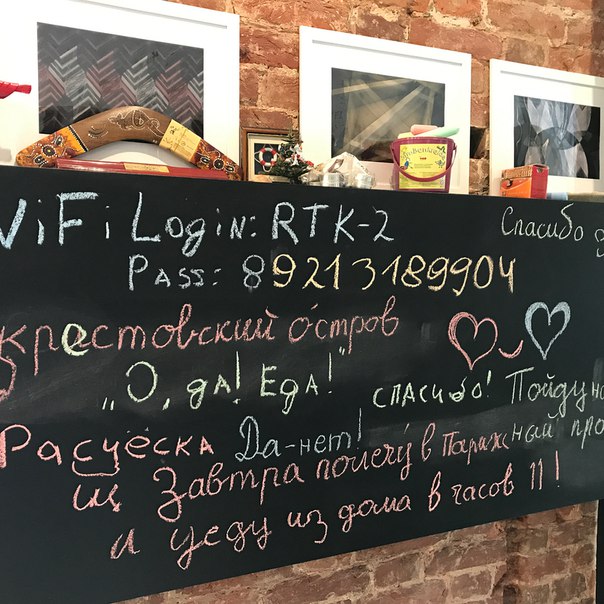 WiFi Login: RTK-2
Спасибо
Pass: 89213189904
крестовский о́стров
„О, да! Еда!"
спасибо! Пойду
Расчёска Да-нет!
Завтра полечу́ в Париж
и уеду из дома в часов 11!